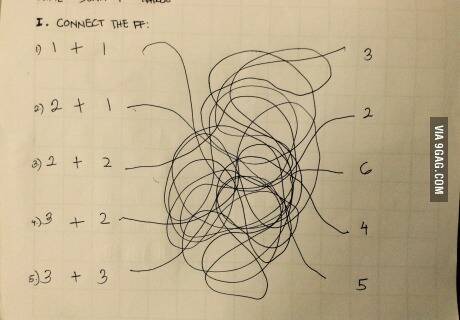 I. CONNECT THE FF:
1) 1 + 1 3
2) 2 + 1 2
3) 2 + 2 6
4) 3 + 2 4
5) 3 + 3 5
VIA 9GAG.COM